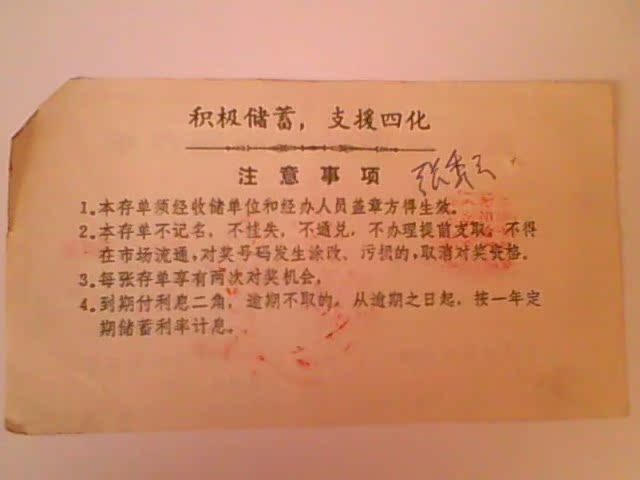 积极储蓄，支援四化
注意事项
张秀云
1.本存单须经收储单位和经办人员盖章方得生效。
2.本存单不记名，不挂失，不通兑，不办理提前支取。不得
在市场流通，对奖号码发生涂改、污损的，取消对奖资格。
3.每张存单享有两次对奖机会，
4.到期付利息二角，逾期不取的。从逾期之日起，按一年定
期储蓄利率计息。